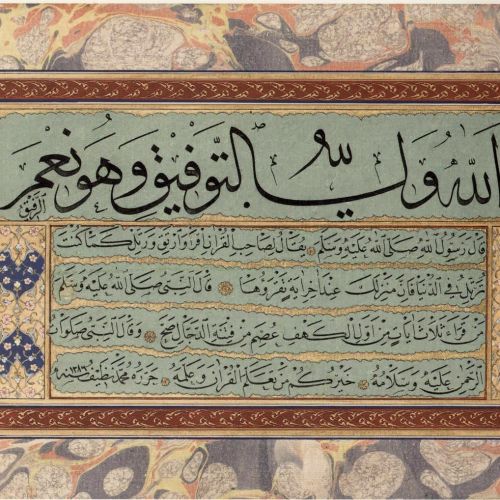 الله ولي التوفيق وهو نعم الرفيق
قال رسول الله صلى الله عليه وسلم يقال لصاحب القرآن اقرأ وارتق ورتل كما كنت
ترتل في الدنيا فإن منزلك عند آخر آية تقرؤها قال النبي صلى الله عليه وسلم
من قرأ ثلاث آيات من أول الكهف عصم من فتنة الدجال صح وقال النبي صلوات
الرحمن عليه وسلامه خيركم من تعلم القرآن وعلمه حرره محمد